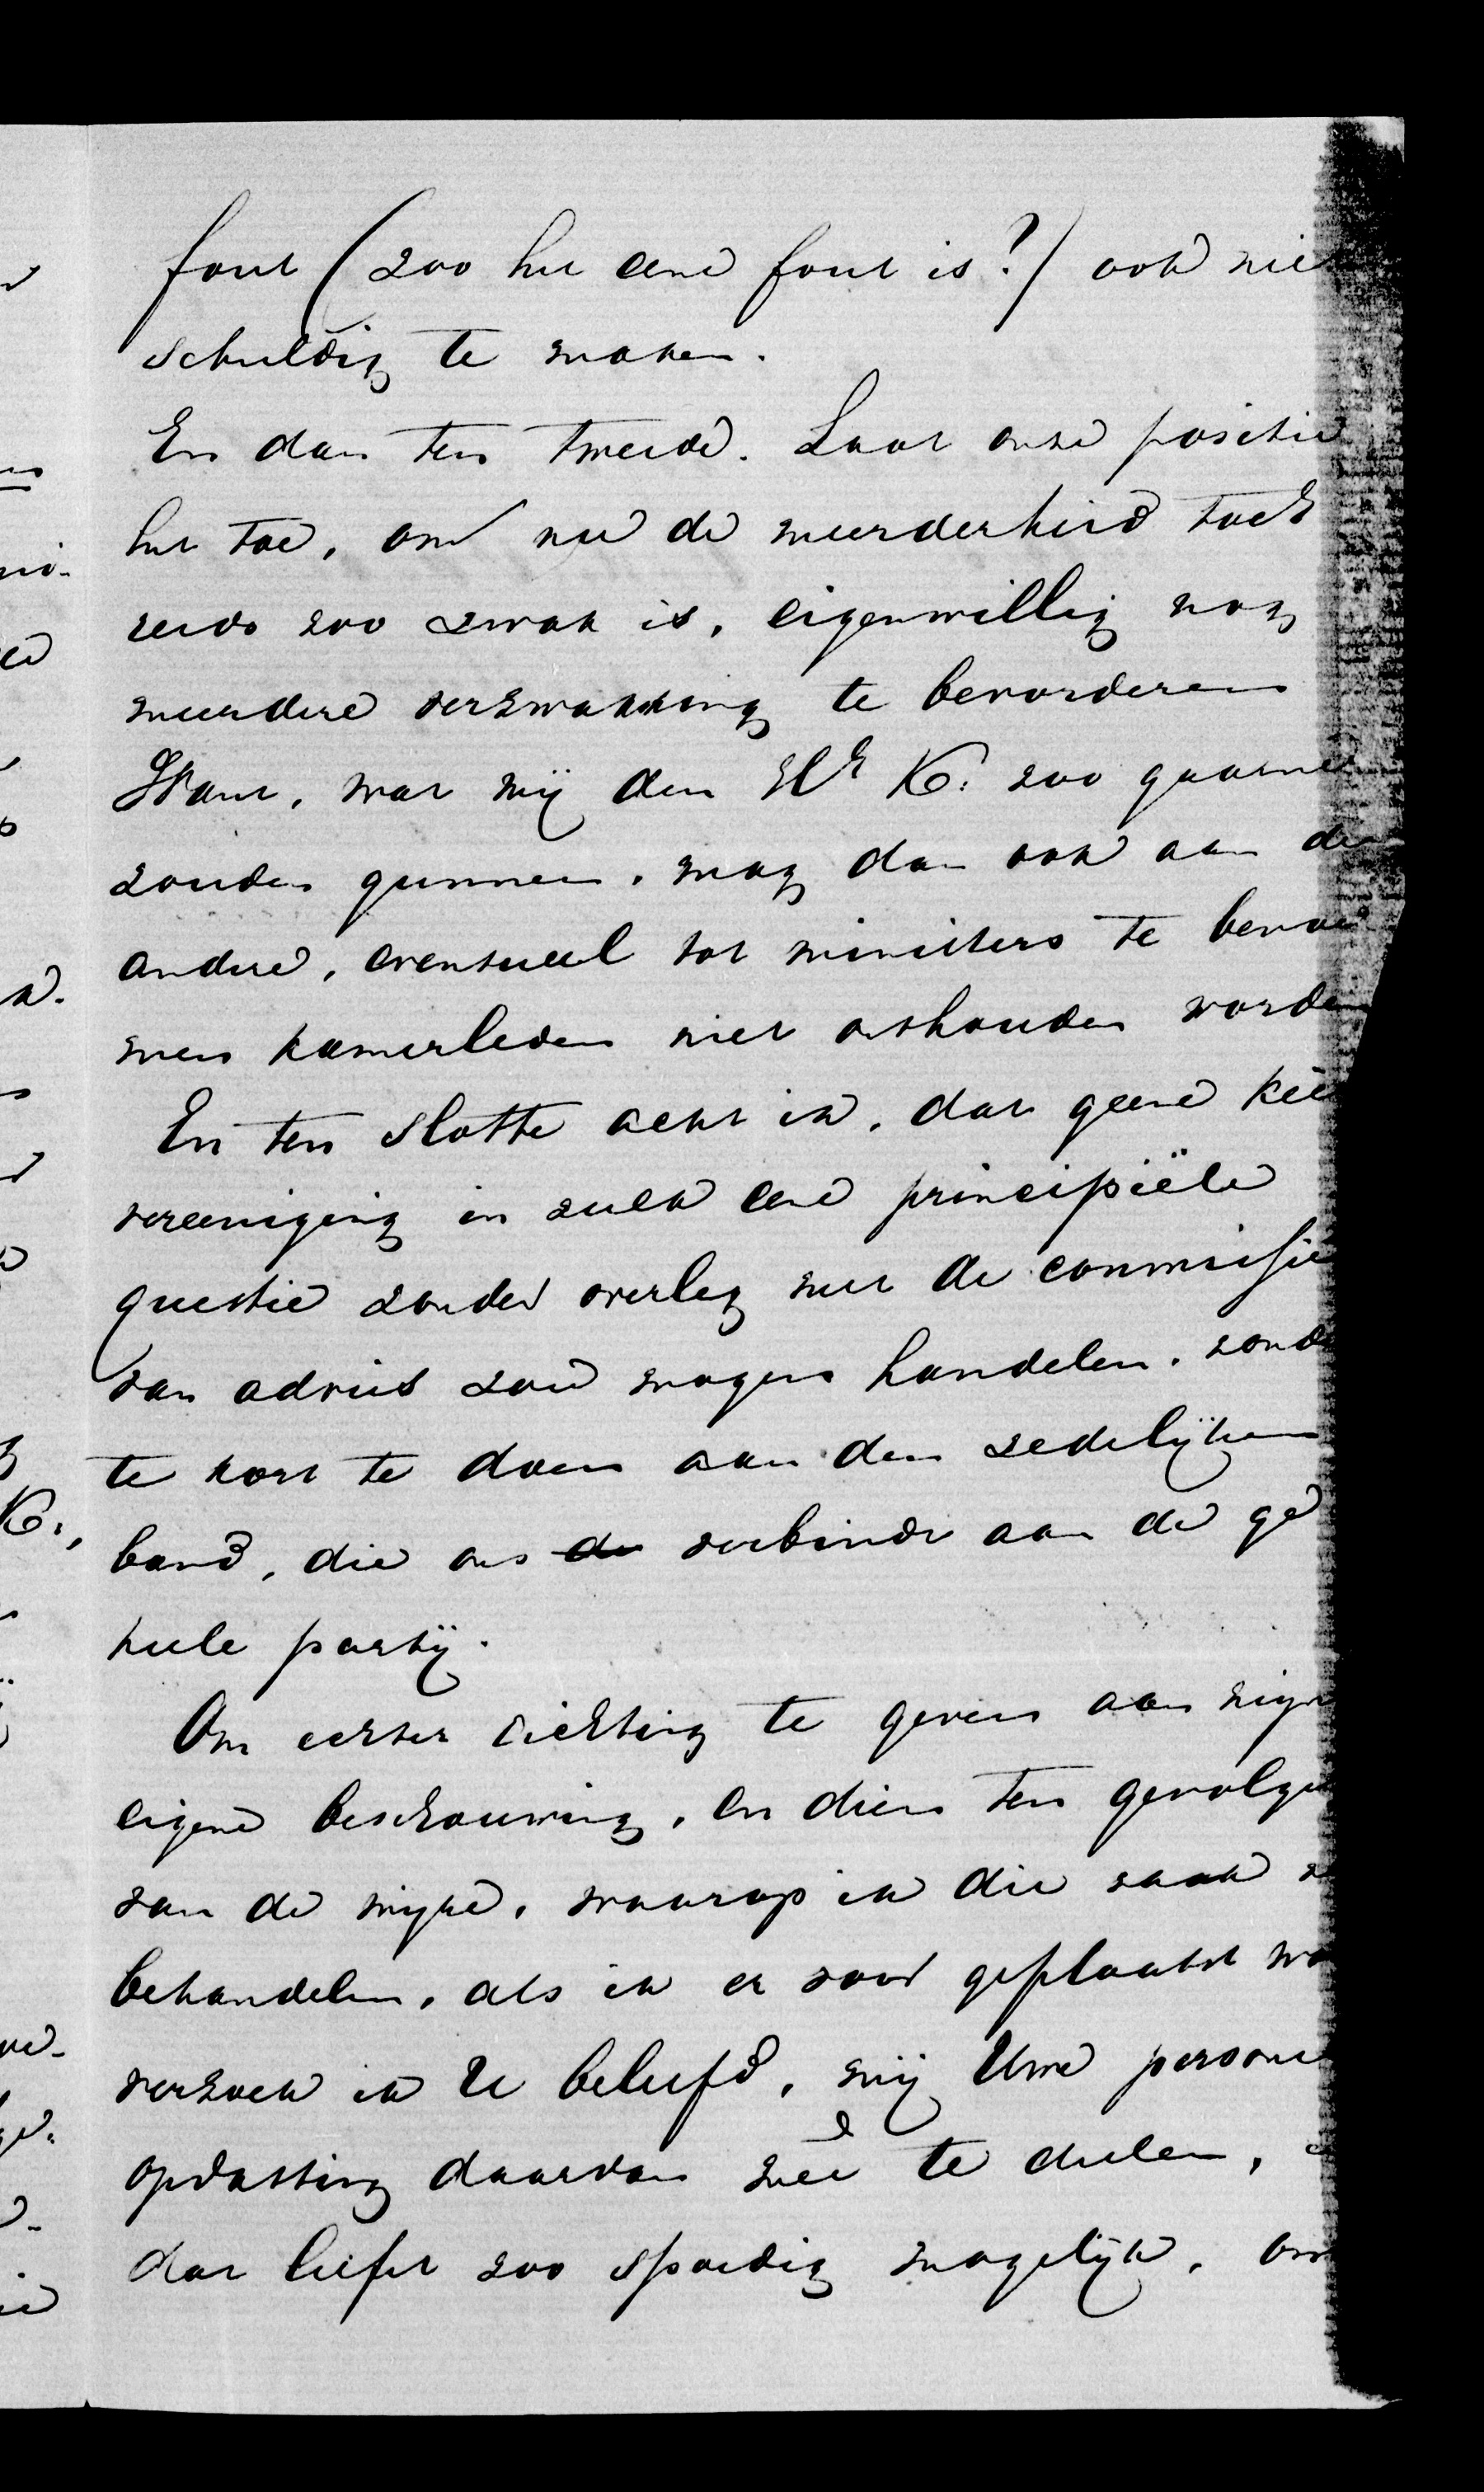 fout (zoo het eene fout is?) ook nie
schuldig te maken.
En dan ten tweede. Laat onze positie
het toe, om nu de meerderheid toch
reeds zoo zwak is, eigenwillig nog
meerdere verzwakking te bevorderen
Want, wat wij den Hr K. zoo gaarne
zouden gunnen, mag dan ook aan de
andere, eventueel tot ministers te benoe
men kamerleden niet onthouden worden
En ten slotte acht ik, dat geene kie
vereeniging in zulk eene principiële
questie zonder overleg met de commissie
van advies zou mogen handelen, zonde
te kort te doen aan den zedelijken
band, die ons de verbindt aan de ge
heele partij.
Om echter richting te geven aan mijn
eigene beschouwing, en dien ten gevolge
van de wijze, waarop ik die zaak
behandelen, als ik er voor geplaatst wo
verzoek ik U beleefd, mij Uwe persone
opvatting daarvan meê te deelen,
dat liefst zoo spoedig mogelijk, om